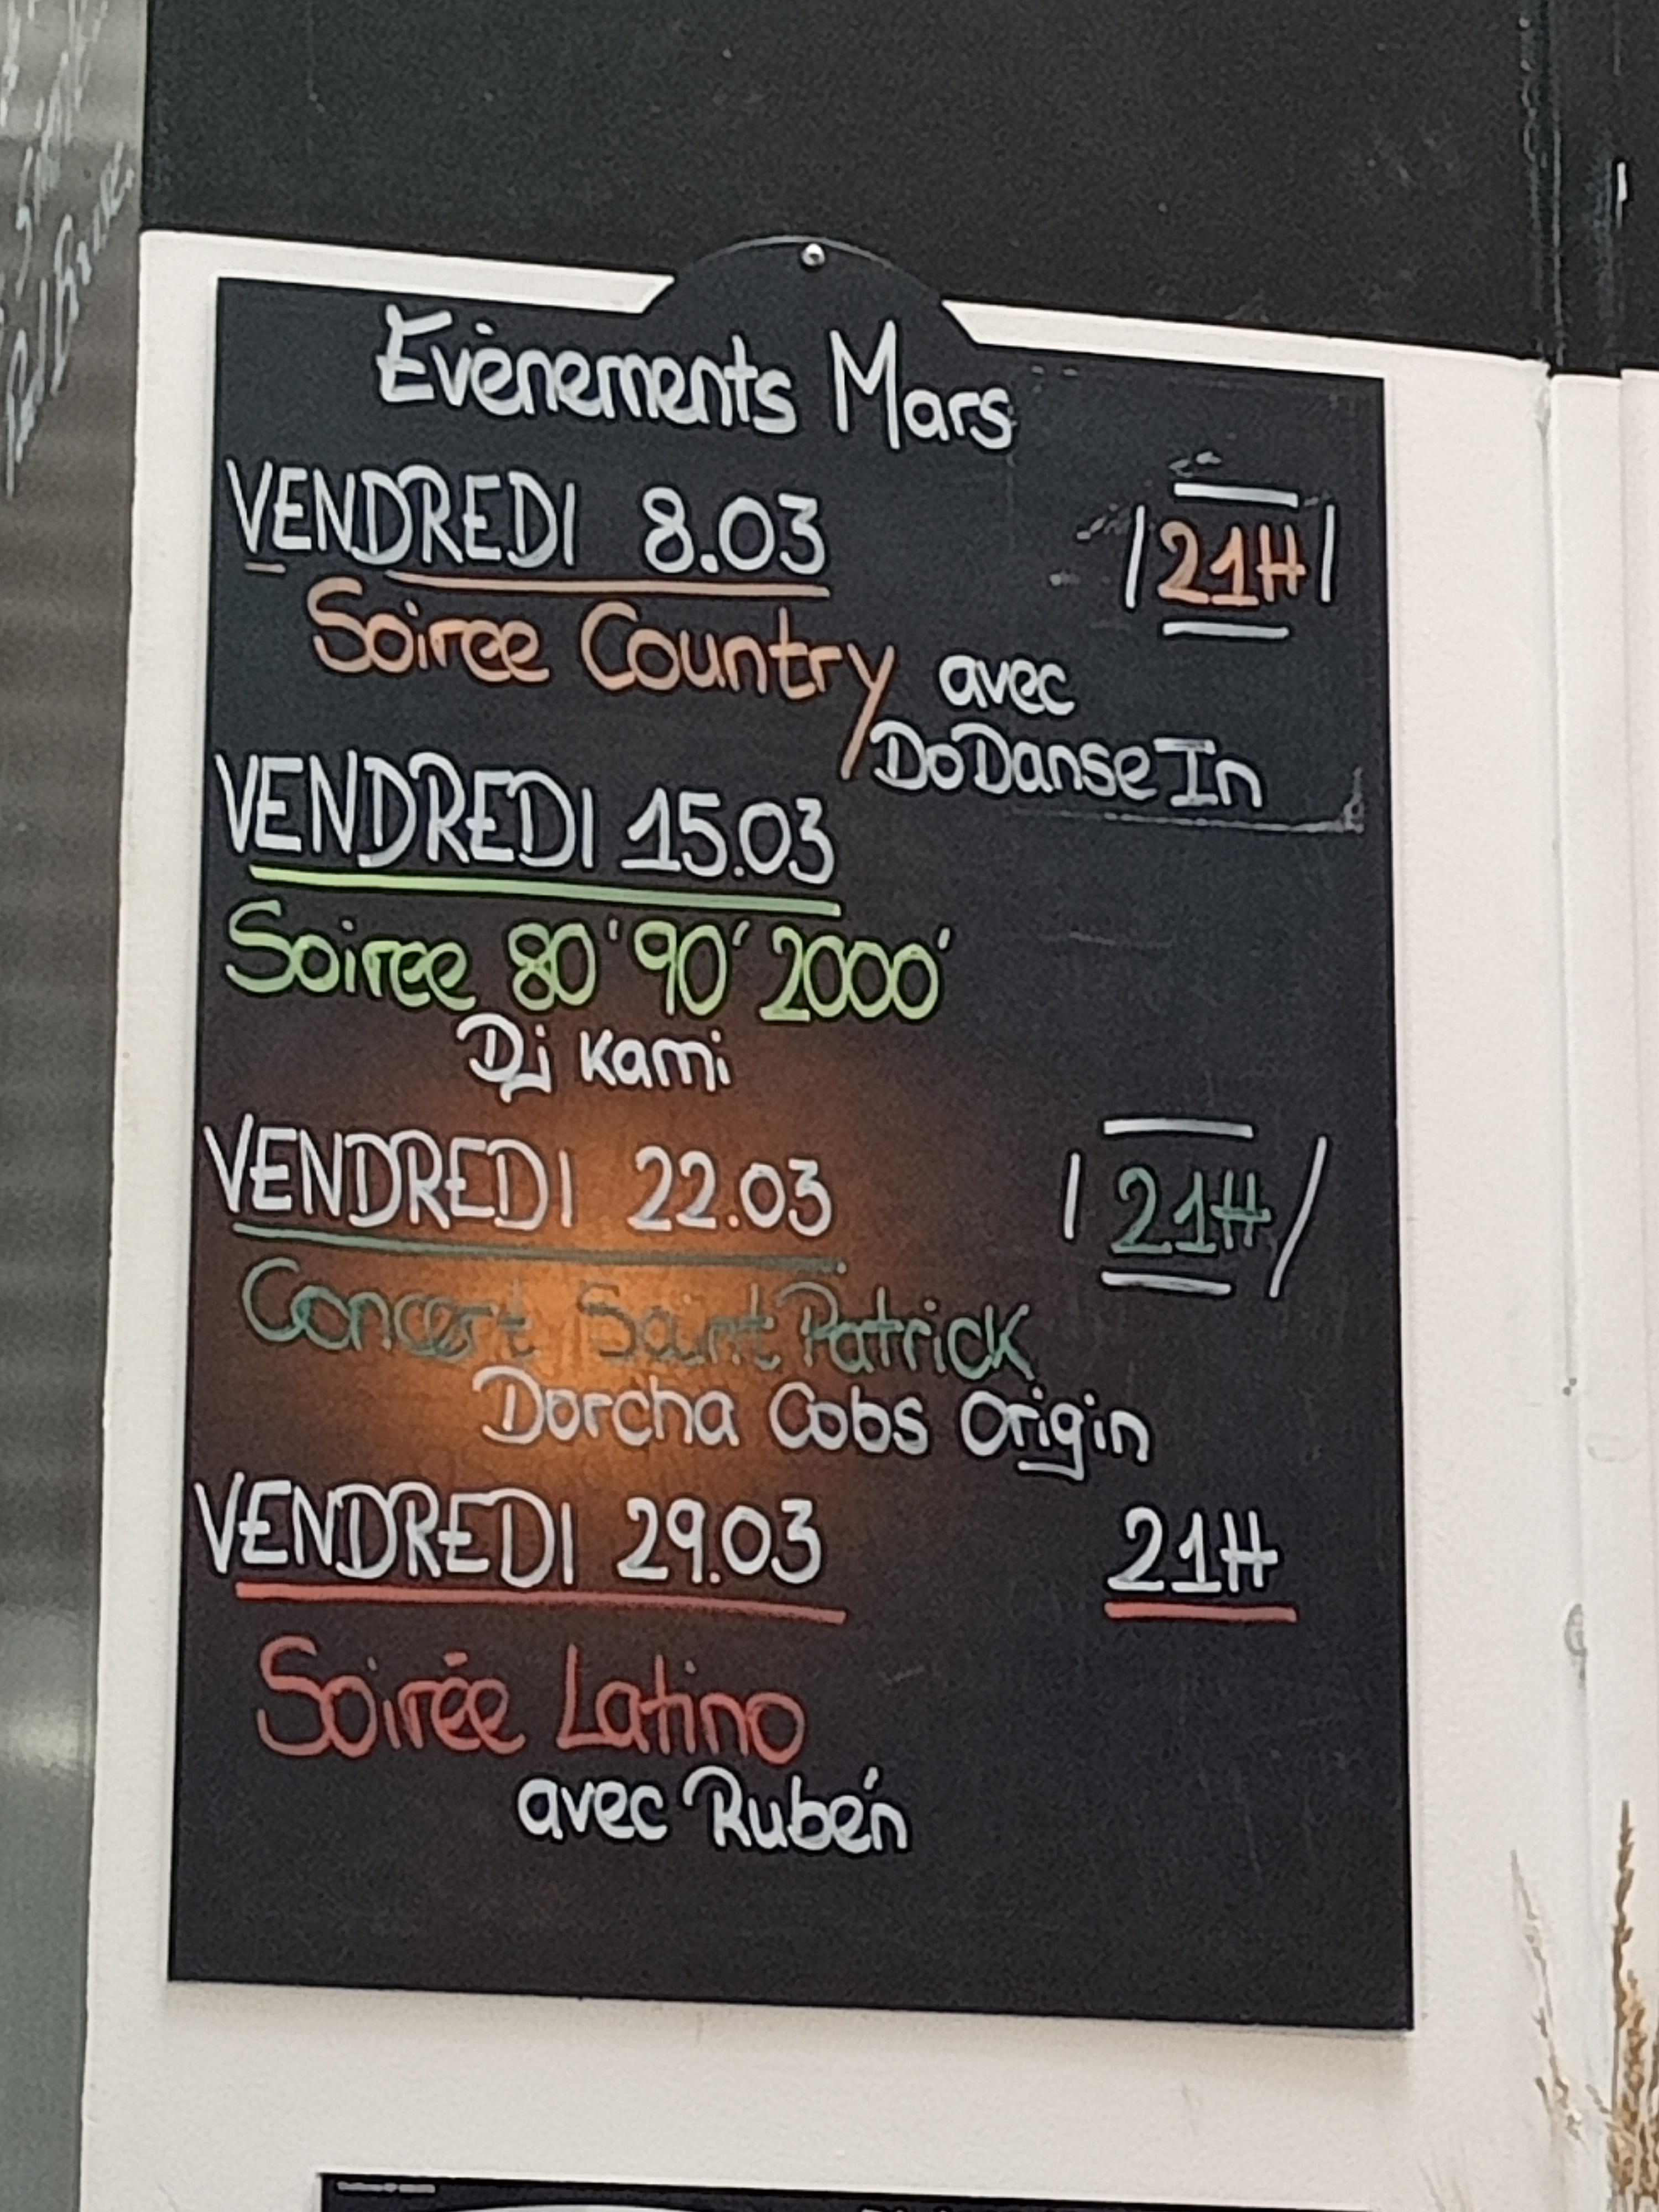 Evènements Mars
VENDREDI 8.03 21H
Soiree Country avec
DoDanse In
VENDREDI 15.03
Soiree 80' 90' 2000'
Dj Kami
VENDREDI 22.03 21H
Concert Saint Patrick
Dorcha Cobs Origin
VENDREDI 29.03 21H
Soirée Latino
avec Rubén